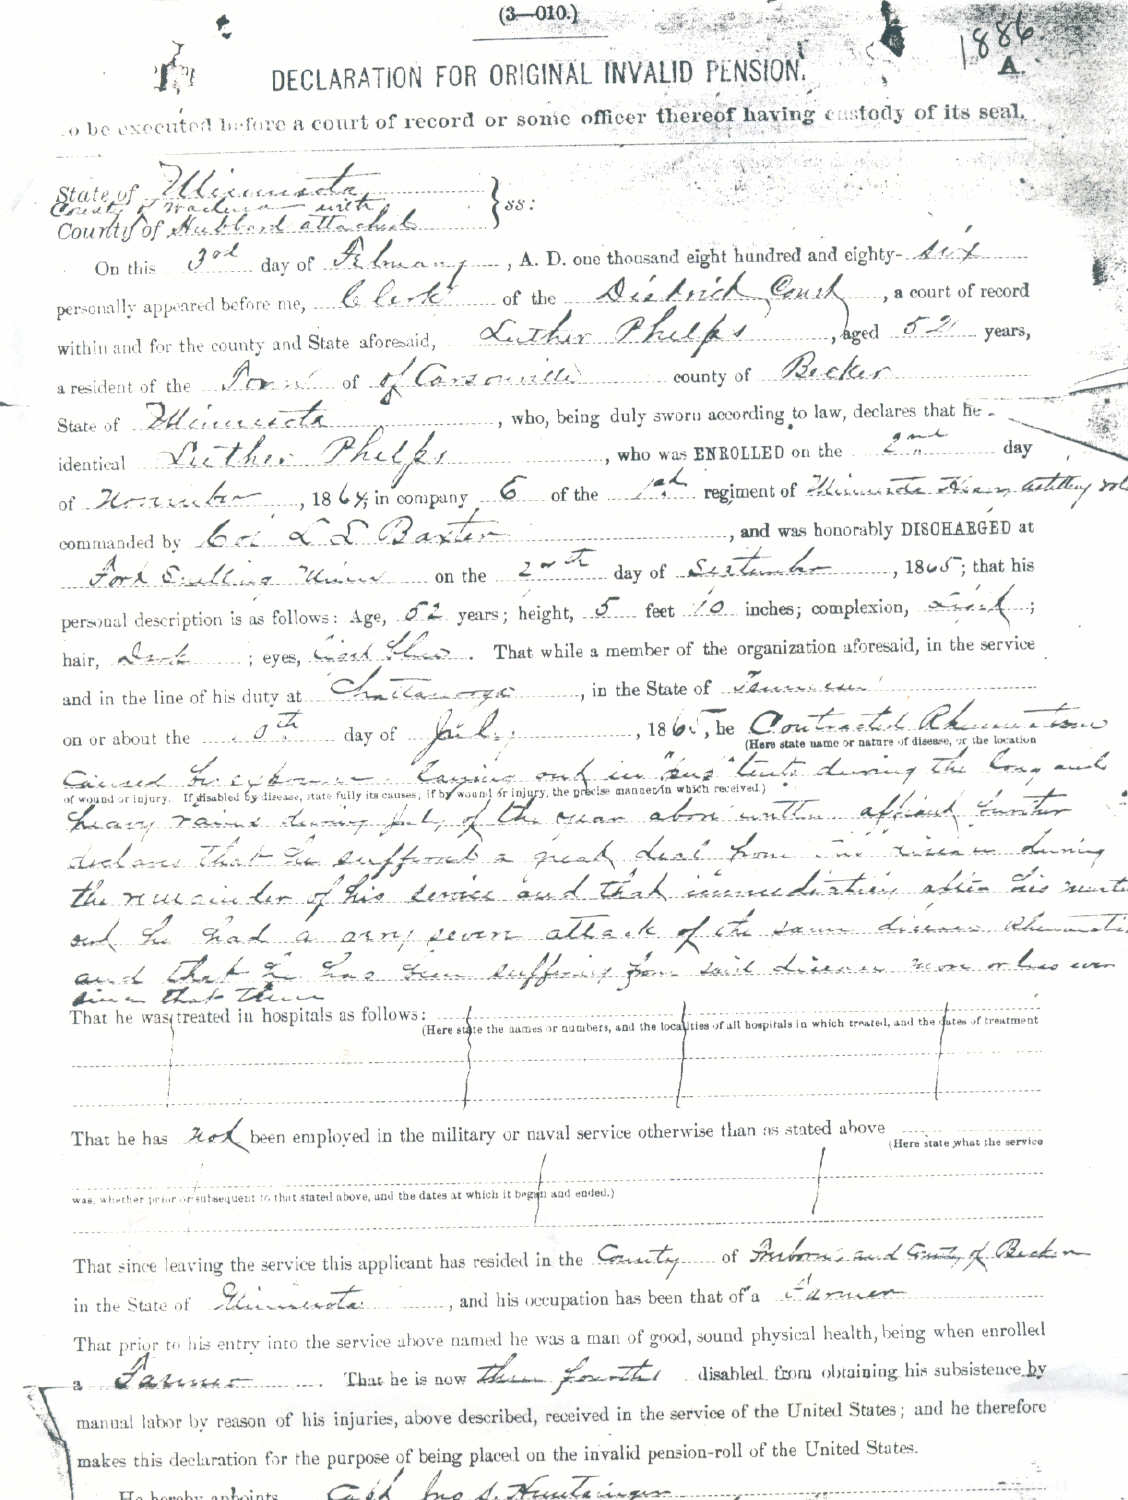 (3—010.)
1886
A.
DECLARATION FOR ORIGINAL INVALID PENSION.
To be executed before a court of record or some officer thereof having custody of its seal.
State of Minnesota
County of Wadena with
County of Hubbard attached
ss:
On this 3rd day of February, A. D. one thousand eight hundred and eighty- six
personally appeared before me, Clerk of the District Court, a court of record
within and for the county and State aforesaid, Luther Phelps, aged 52 years,
a resident of the Town of of Carsonville county of Becker
State of Minnesota, who, being duly sworn according to law, declares that he
identical Luther Phelps, who was ENROLLED on the 2nd day
of November, 1864, in company of the 1st regiment of Minnesota Heavy Artillery vol
commanded by Col L L Baxter, and was honorably DISCHARGED at
Fort Snelling Minn on the day of September, 1865; that his
personal description is as follows: Age, 52 years; height, 5 feet 10 inches; complexion, ;
hair, Dark; eyes, . That while a member of the organization aforesaid, in the service
and in the line of his duty at Chattanooga, in the State of Tennessee
on or about the day of July, 1865, he Contracted Rheumatism
(Here state name or nature of disease, or the location
Caused by exposure laying out in tents during the long and
of wound or injury. If disabled by disease, state fully its causes, if by wound or injury, the precise manner in which received.)
heavy rains during July of the year above written affiant further
declares that he suffered a great deal from disease during
the remainder of his service and that immediately after his
out he had a very severe attack of the same disease Rheumatis
and that he has been suffering from said disease more or less ever
since that time
That he was treated in hospitals as follows:
(Here state the names or numbers, and the localities of all hospitals in which treated, and the dates of treatment
That he has not been employed in the military or naval service otherwise than as stated above
(Here state what the service
was, whether prior or subsequent to that stated above, and the dates at which it began and ended.)
That since leaving the service this applicant has resided in the County of Freeborn and County of Becker
in the State of Minnesota, and his occupation has been that of a Farmer
That prior to his entry into the service above named he was a man of good, sound physical health, being when enrolled
a Farmer. That he is now three fourths disabled from obtaining his subsistence by
manual labor by reason of his injuries, above described, received in the service of the United States; and he therefore
makes this declaration for the purpose of being placed on the invalid pension-roll of the United States.
He hereby appoints